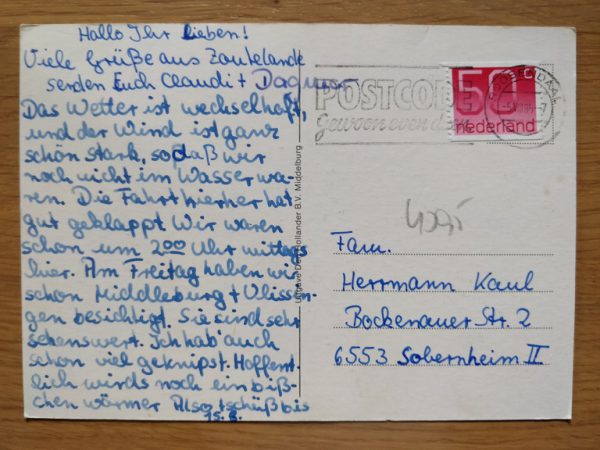 Hallo Ihr Lieben!
Viele Grüße aus Zoutelande
senden Euch Claudi + Dagmar
Das Wetter ist wechselhaft,
und der Wind ist ganz
schön stark, sodaß wir
noch nicht im Wasser wa-
ren. Die Fahrt hierher hat
gut geklappt Wir waren
schon um 2⁰⁰ Uhr mittags
hier. Am Freitag haben wir
schon Middleburg + Vlissen-
gen besichtigt. Sie sind sehr
sehenswert. Ich hab' auch
schon viel geknipst. Hoffent-
lich wirds noch ein biß-
chen wärmer Also tschüß bis
15.8.
Hollander B.V. Middelburg
POSTCODE
gewoon even doen
50
nederland
Fam.
Herrmann Kaul
Bockenauer Str. 2
6553 Sobernheim II